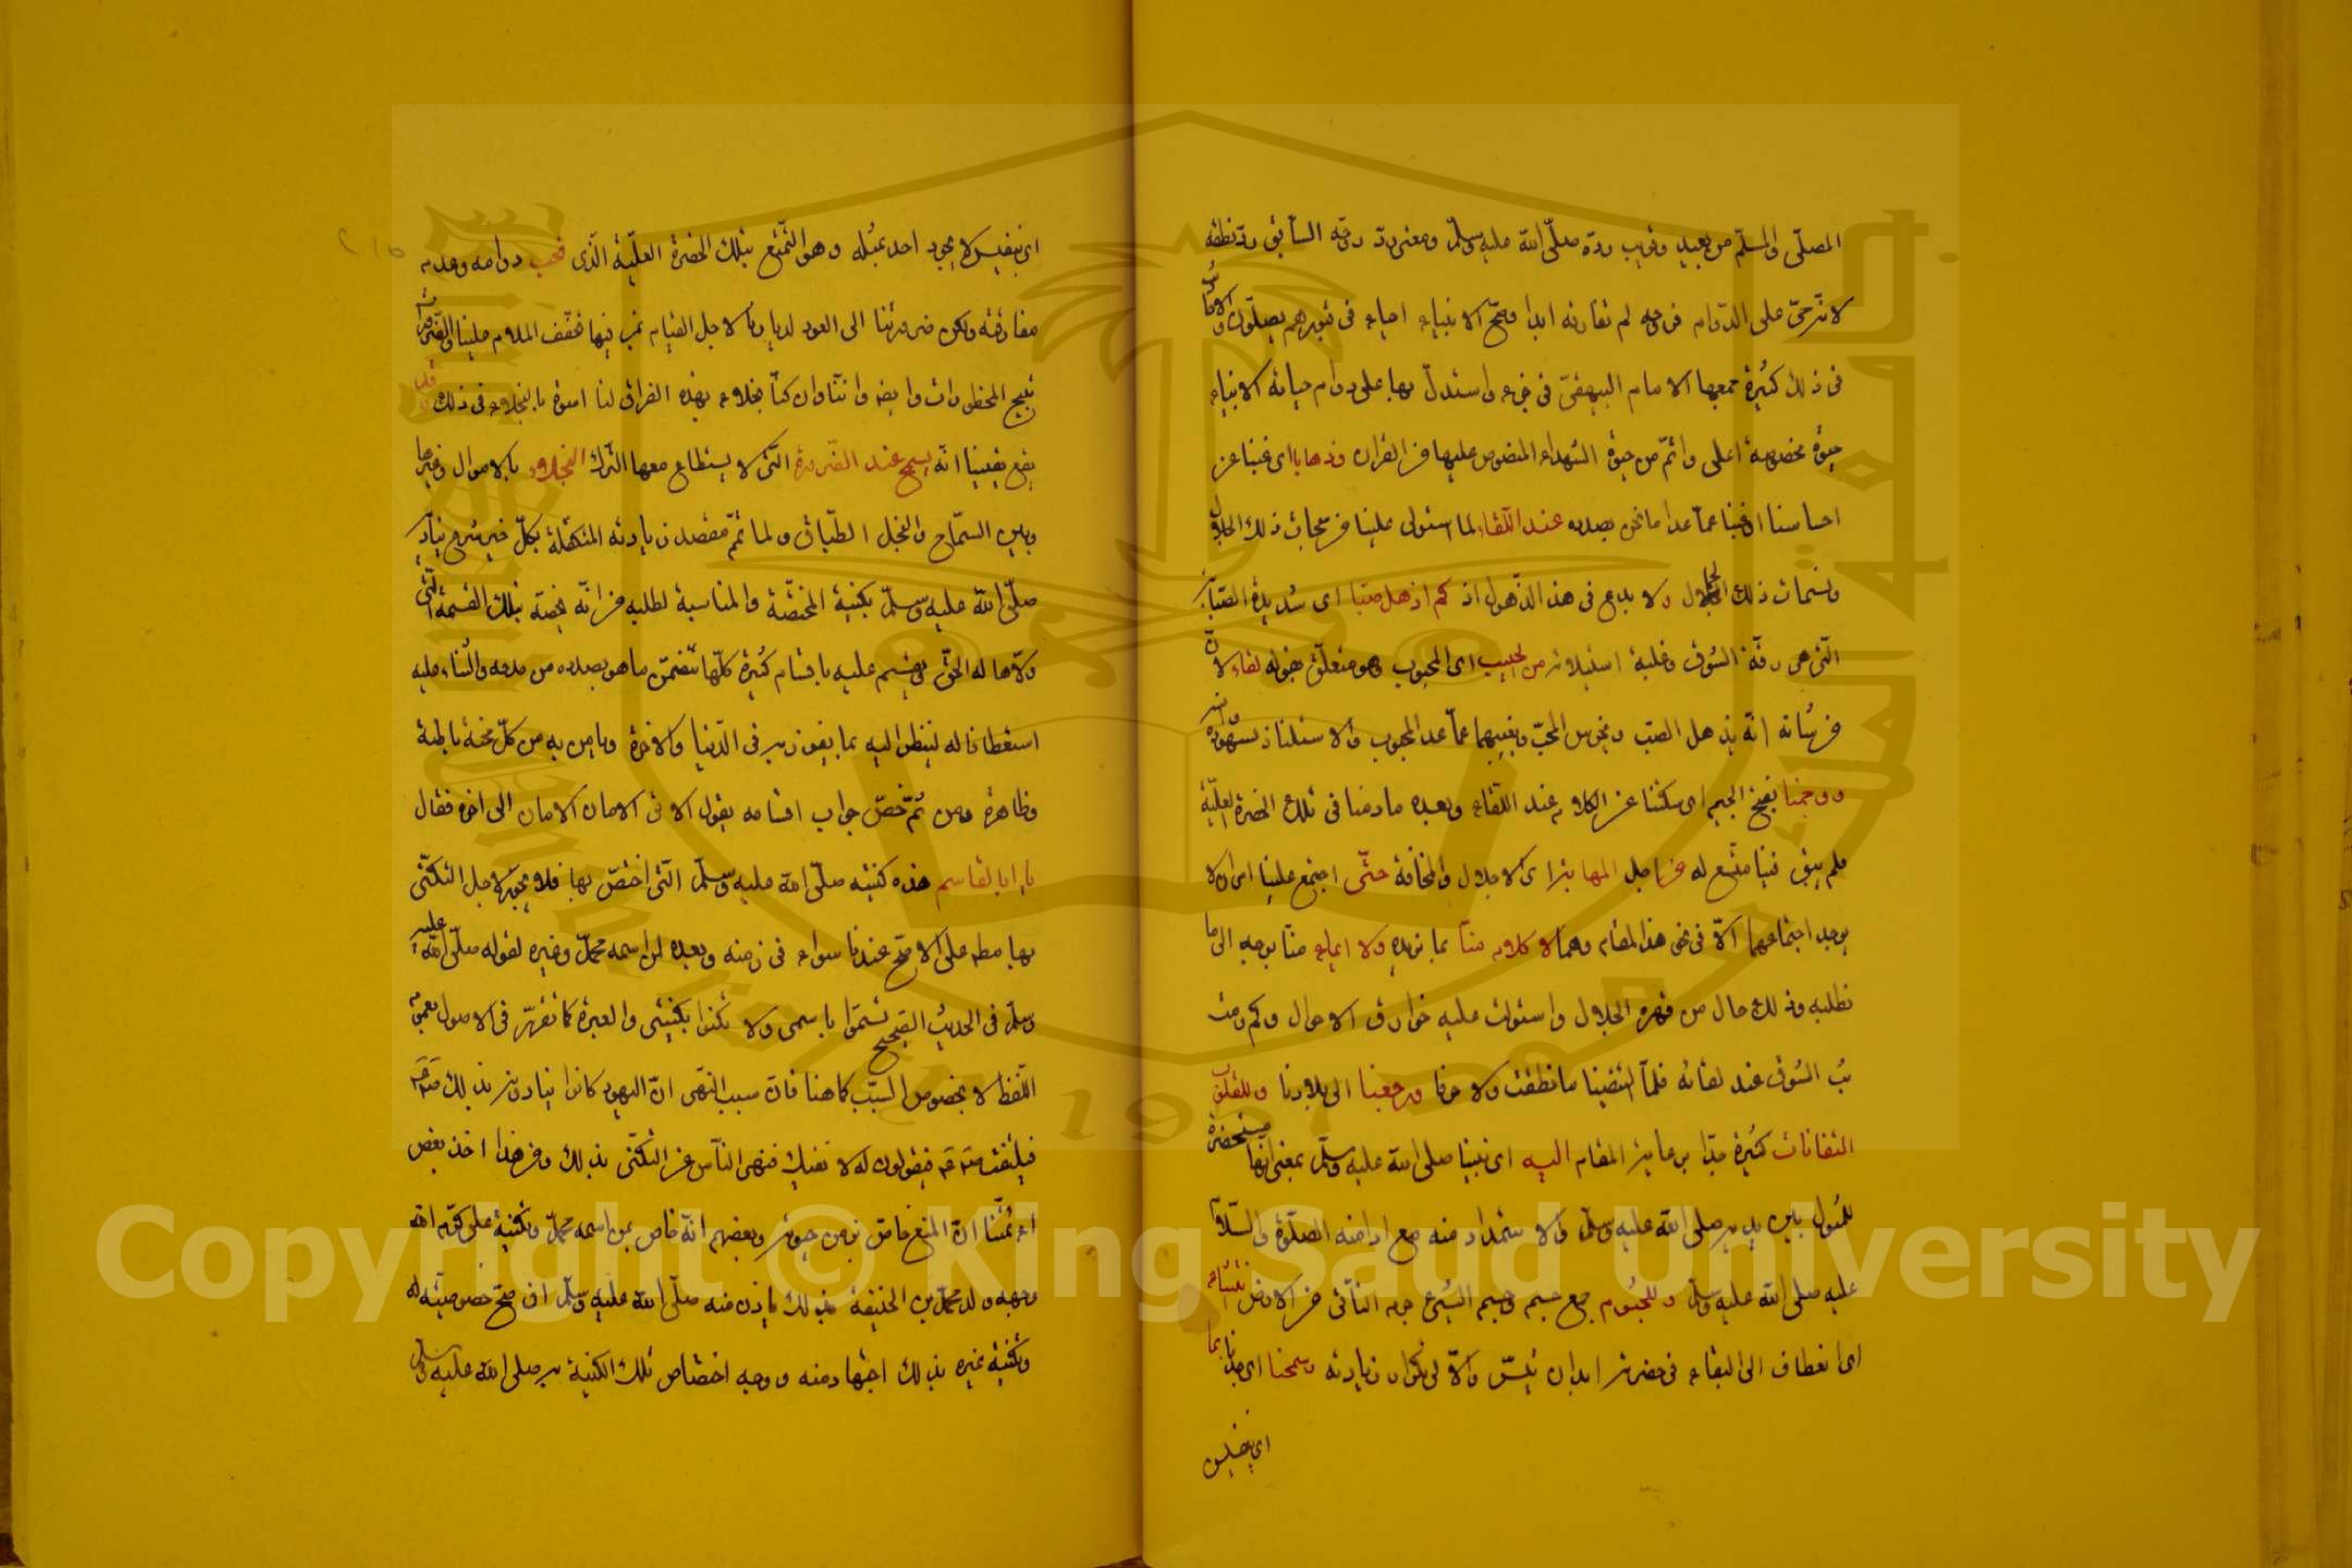 المصلّى والمسلّم من بعيد وقريب ردّه صلّى الله عليه وسلّم ومعنى ردّ روحه السابق ردّ نطقه
لا ترحى على الدّوام فروحه لم تفارقه ابدا وصحّ الانبياء احياء فى قبورهم يصلّون والاحاديث
فى ذلك كثيرة جمعها الامام البيهقىّ فى جزء واستدلّ بها على دوام حياة الانبياء
حيوة مخصوصة اعلى واتمّ من حيوة الشهداء المنصوص عليها فى القرآن وذهلنا اى غبنا عن
احساسنا اى غبنا عمّا عدا ما نحن بصدده عند اللّقاء لما استولى علينا من سبحات ذلك الجلال
ونسمات ذلك الجمال ولا بدع فى هذا الذّهول اذ كم اذهل صبّا اى شديد الصّبابة
التى هى رقّة الشوق وغلبة استيلائه من الحبيب اى المحبوب وهو متعلّق بقوله لقاء لانّ
من شانه انّه يذهل الصبّ ويخرس المحبّ ويغيبهما عمّا عدا المحبوب والاستلذاذ بشهوده وانسه
ووجمنا بفتح الجيم اى سكتنا عن الكلام عند اللّقاء وبعده ما دمنا فى تلك الحضرة العليّة
فلم يبق فينا متّسع له من اجل المهابة اى الاجلال والمخافة حتّى اجتمع علينا امران لا
يوجد اجتماعهما الاّ فى نحو هذا المقام وهما لا كلام منّا بما نريده ولا ايماء منّا يوجه الى ما
نطلبه وذلك حال من قهره الجلال واستولت عليه خوارق الاحوال وكم رمت
بثّ الشوق عند لقائه فلمّا التقينا ما نطقت ولا حرفا ورجعنا الى بلادنا وللقلوب
التفاتات كثيرة جدّا برعاية المقام اليه اى نبينا صلى الله عليه وسلّم بمعنى انّها مستحضرة
للمثول بين يديه صلى الله عليه وسلّم والاستمداد منه مع ادامة الصلّوة والسّلام
عليه صلى الله عليه وسلّم وللجسوم جمع جسم وجسم الشئ جرمه الناتئ من الارض انثناء
اى انعطاف الى البقاء فى حضرته ابدا ان تيسّر والاّ فتكرار زيارته وسمحنا اى جدنا بما
اى بنفيس
اى نفيس لا يجود احد بمثله وهو التّمتّع بتلك الحضرة العلّية الّذى نحب دوامه وعدم
مفارقته ولكن ضرورتنا الى العود لديارنا لاجل القيام بمن فيها تخفّف الملام علينا والضّرورات
تبيح المحظورات وايضا فانّنا وان كنّا بخلاء بهذه الفراق لنا اسوة بالبخلاء فى ذلك وقد
يقع يقينيا انّه يسمح عند الضّرورة التى لا يستطاع معها الترك البخلاء بالاموال وغيرها
وبين السّماح والبخل الطّباق ولما تمّ مقصد زيارته المتكفّلة بكلّ خير شرع يناديه
صلّى الله عليه وسلّم بكنية المختصّة والمناسبة لطلبه من انّه يخصّه بتلك القسمة الّتى
ولاّها له الحقّ ويقسم عليه باقسام كثيرة كلّها تتضمّن ما هو بصدده من مدحه والثناء عليه
استعطافا له لينظر اليه بما يفوز به فى الدّنيا والاخرة ويامن به من كلّ محنة باطنة
وظاهرة ومن ثمّ خصّ جواب اقسامه بقول الاتى الامان الامان الى اخره فقال
يا ابا القاسم هذه كنيته صلّى الله عليه وسلّم التى اختصّ بها فلا يجوز لاجل التكنّى
بها مطلقا على الاصحّ عندنا سواء فى زمنه وبعده لمن اسمه محمّد وغيره لقوله صلّى الله عليه
وسلّم فى الحديث الصّحيح تسمّوا باسمى ولا تكنوا بكنيتى والعبرة كما تقرّر فى الاصول بعموم
اللّفظ لا بخصوص السّبب كما هنا فانّ سبب النّهى انّ اليهود كانوا ينادونه بذلك
فيلتفت فيقولون له لا نعنيك فنهى النّاس عن التكنّى بذلك ومن هذا اخذ بعض
ائمّتنا انّ المنع خاصّ بزمن حيوته وبعضهم انّه خاص بمن اسمه محمّد وتكنية على كرّم الله
وجهه ولده محمّد بن الحنفية بذلك باذن منه صلّى الله عليه وسلّم ان صحّ خصوصيّة له
وتكنية غيره بذلك اجتهاد منه ووجه اختصاص تلك الكنية به صلى الله عليه وسلّم
Copyright © King Saud University
1957